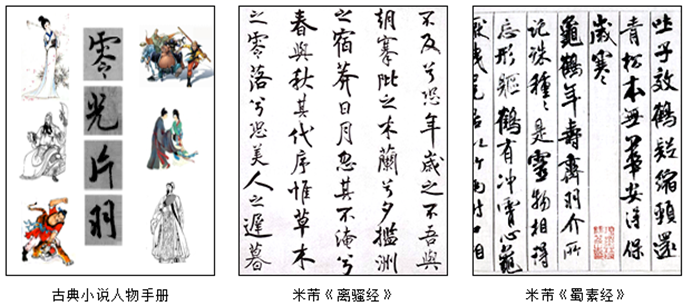 零光片羽
古典小说人物手册
不及兮恐年歲之不吾與
朝搴阰之木蘭兮夕攬洲
之宿莽日月忽其不淹兮
春與秋其代序惟草木
之零落兮恐美人之遲暮
米芾《离骚经》
吐子效鶴疑縮頸還
青松本無華安得保
歲寒
龜鶴年壽齊羽介所
託殊種々是靈物相得
忘形軀鶴有沖霄心龜
厭曳尾居以竹兩附口相
米芾《蜀素经》